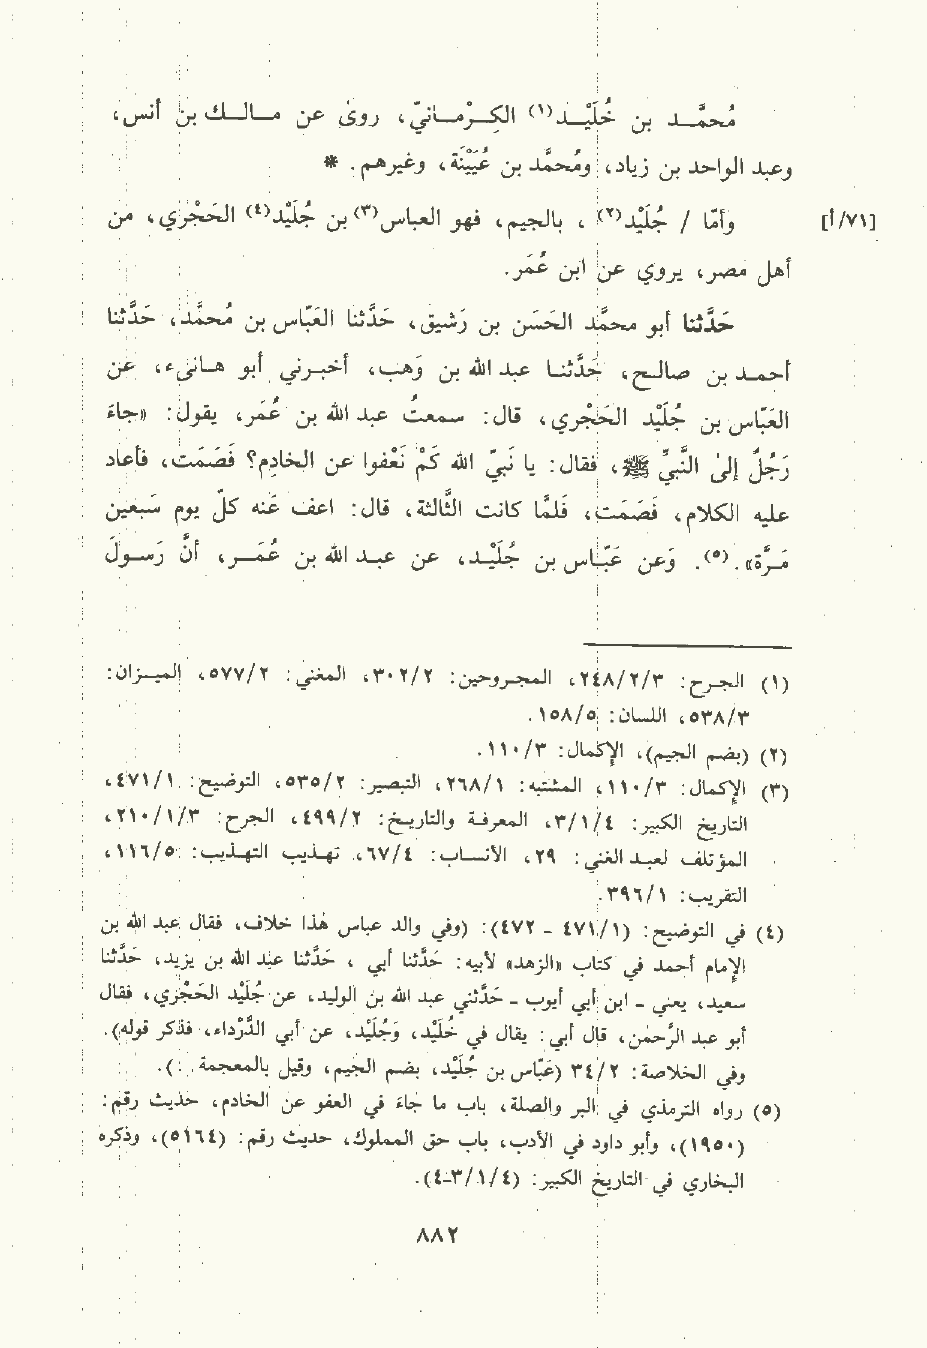 مُحمَّـد بن خُلَيْـد(١) الكِـرْمـانيّ، روىٰ عن مـالـك بن أنس،
وعبد الواحد بن زياد، ومُحمَّد بن عُيَيْنَة، وغيرهم. *
[٧١/أ] وأمَّا / جُلَيْد(٢)، بالجيم، فهو العباس(٣) بن جُلَيْد(٤) الحَجْري، من
أهل مصر، يروي عن ابن عُمَر.
حَدَّثنا أبو محمَّد الحَسَن بن رَشيق، حَدَّثنا العَبَّاس بن مُحمَّد، حَدَّثنا
أحمـد بن صـالـح، حَدَّثنـا عبد الله بن وَهب، أخبـرني أبو هـانىء، عن
العَبَّاس بن جُلَيْد الحَجْري، قال: سمعتُ عبد الله بن عُمَر، يقول: «جاءَ
رَجُلٌ إلىٰ النَّبيِّ ﷺ، فقال: يا نَبيَّ الله كَمْ نَعْفو عن الخادِم؟ فَصَمَتَ، فأعاد
عليه الكلام، فَصَمَت، فَلمَّا كانت الثَّالثة، قال: اعف عَنه كلَّ يوم سَبعين
مَـرَّة».(٥). وعَن عَبّـاس بن جُلَيْـد، عن عبـد الله بن عُمَـر، أنَّ رَسـولَ
(١) الجـرح: ٣/٢/٢٤٨، المجـروحين: ٢/٣٠٢، المغني: ٢/٥٧٧، الميـزان:
٣/٥٣٨، اللسان: ٥/١٥٨.
(٢) (بضم الجيم)، الإكمال: ٣/١١٠.
(٣) الإكمال: ٣/١١٠، المشتبه: ١/٢٦٨، التبصير: ٢/٥٣٥، التوضيح: ١/٤٧١،
التاريخ الكبير: ٤/١/٣، المعرفة والتاريـخ: ٢/٤٩٩، الجرح: ٣/١/٢١٠،
المؤتلف لعبـد الغني: ٢٩، الأنسـاب: ٤/٦٧، تهـذيب التهـذيب: ٥/١١٦،
التقريب: ١/٣٩٦.
(٤) في التوضيح: (١/٤٧١ - ٤٧٢): (وفي والد عباس هٰذا خلاف، فقال عبد الله بن
الإمام أحمد في كتاب «الزهد» لأبيه: حَدَّثنا أبي، حَدَّثنا عبد الله بن يزيد، حَدَّثنا
سعيد، يعني - ابن أبي أيوب - حَدَّثني عبد الله بن الوليد، عن جُلَيْد الحَجْري، فقال
أبو عبد الرَّحمٰن، قال أبي: يقال في خُلَيْد، وَجُلَيْد، عن أبي الدَّرْداء، فذكر قوله).
وفي الخلاصة: ٢/٣٤ (عَبَّاس بن جُلَيْد، بضم الجيم، وقيل بالمعجمة).
(٥) رواه الترمذي في البر والصلة، باب ما جاءَ في العفو عن الخادم، حديث رقم:
(١٩٥٠)، وأبو داود في الأدب، باب حق المملوك، حديث رقم: (٥١٦٤)، وذكره
البخاري في التاريخ الكبير: (٤/١/٣-٤).
٨٨٢